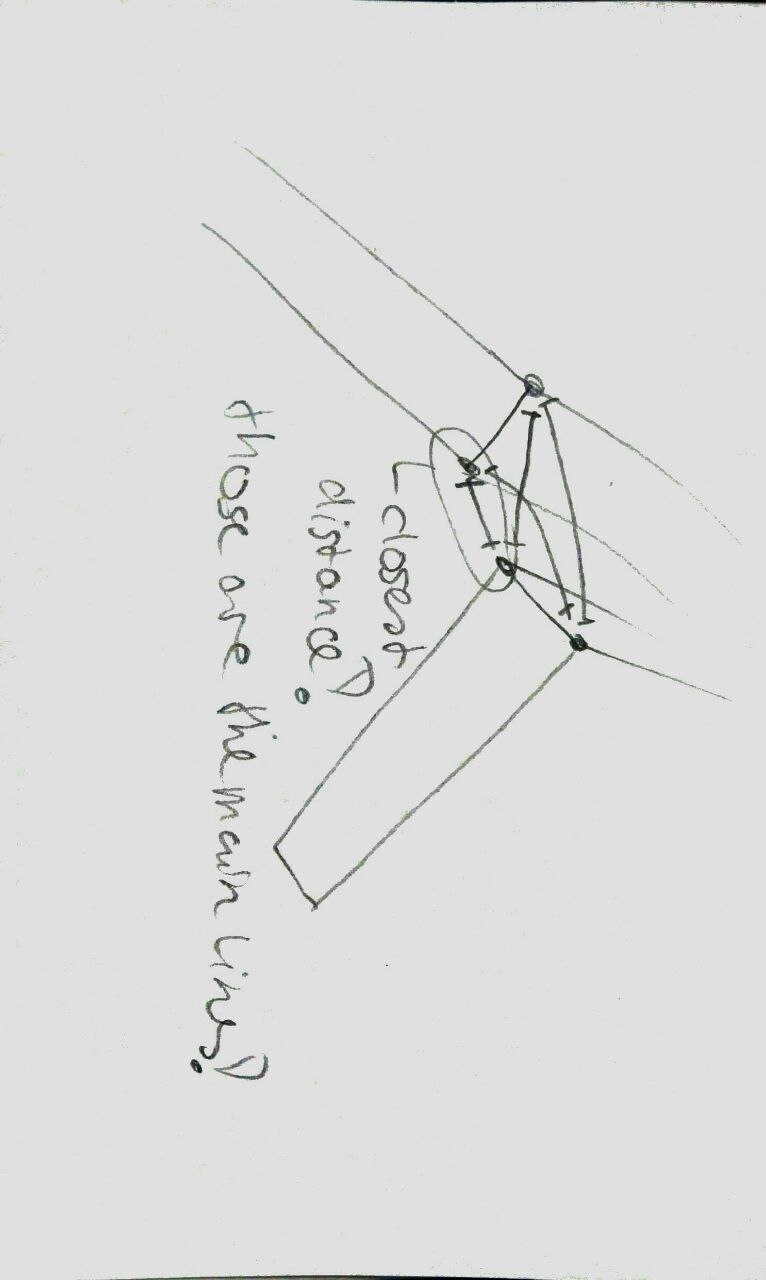 closest
distance?
those are the main lines?